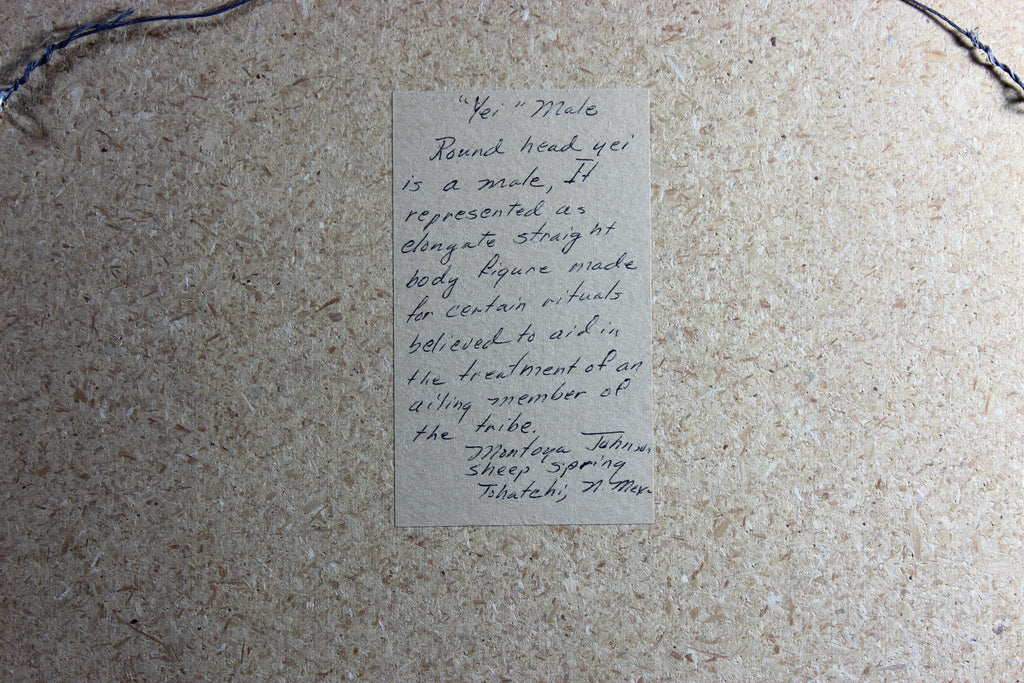 "Yei" Male
Round head yei
is a male, It
represented as
elongate straight
body figure made
for certain rituals
believed to aid in
the treatment of an
ailing member of
the tribe.
Montoya Johnson
sheep spring
Tohatchi, N. Mex.